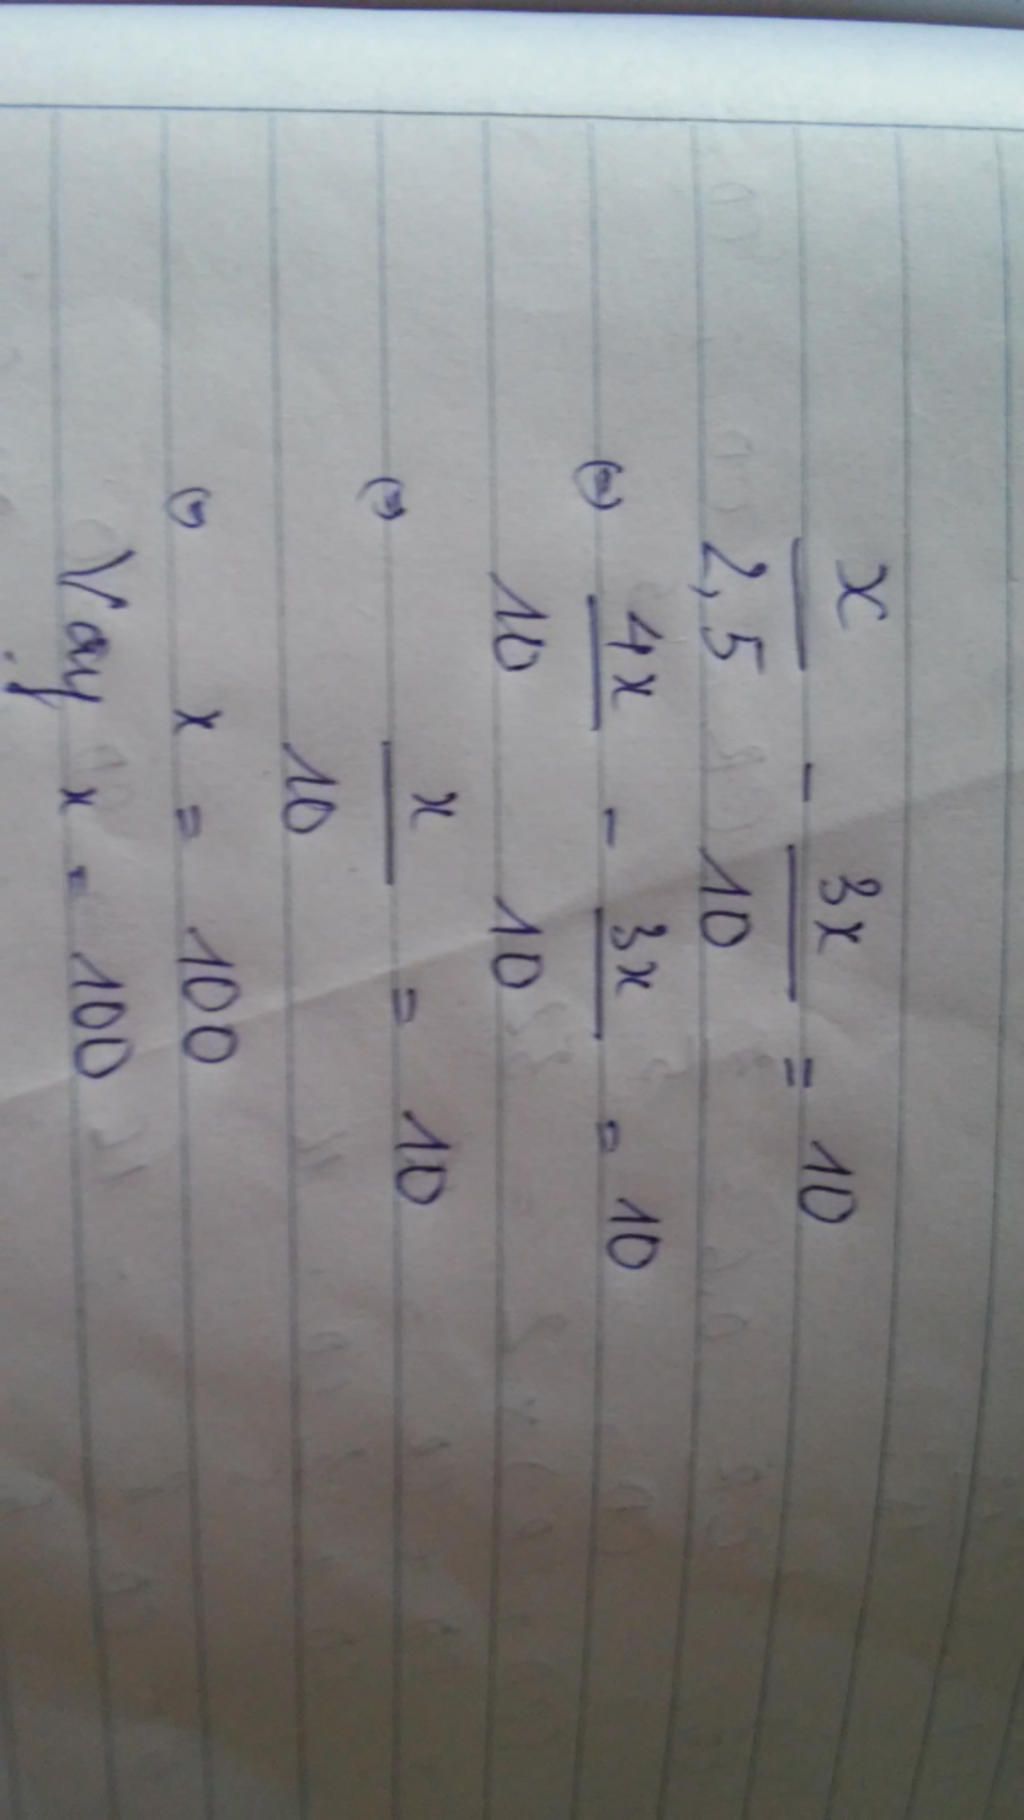 x/2,5 - 3x/10 = 10
⇔ 4x/10 - 3x/10 = 10
⇔ x/10 = 10
⇔ x = 100
Vậy x = 100